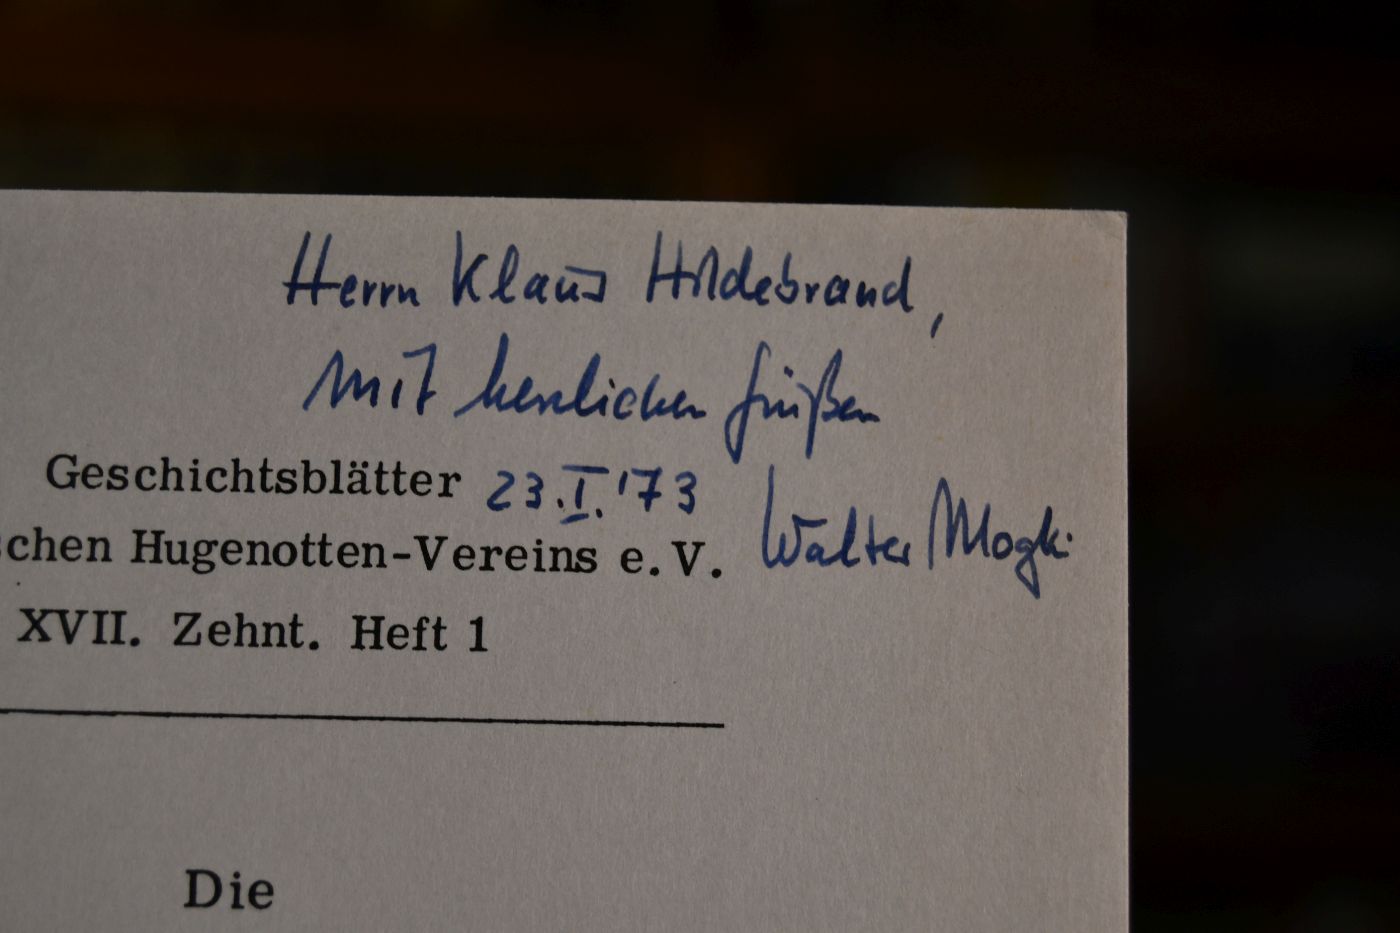 Herrn Klaus Hildebrand,
mit herzlichen Grüßen
Geschichtsblätter 23.I.'73
schen Hugenotten-Vereins e. V. Walter Mogk
XVII. Zehnt. Heft 1
Die